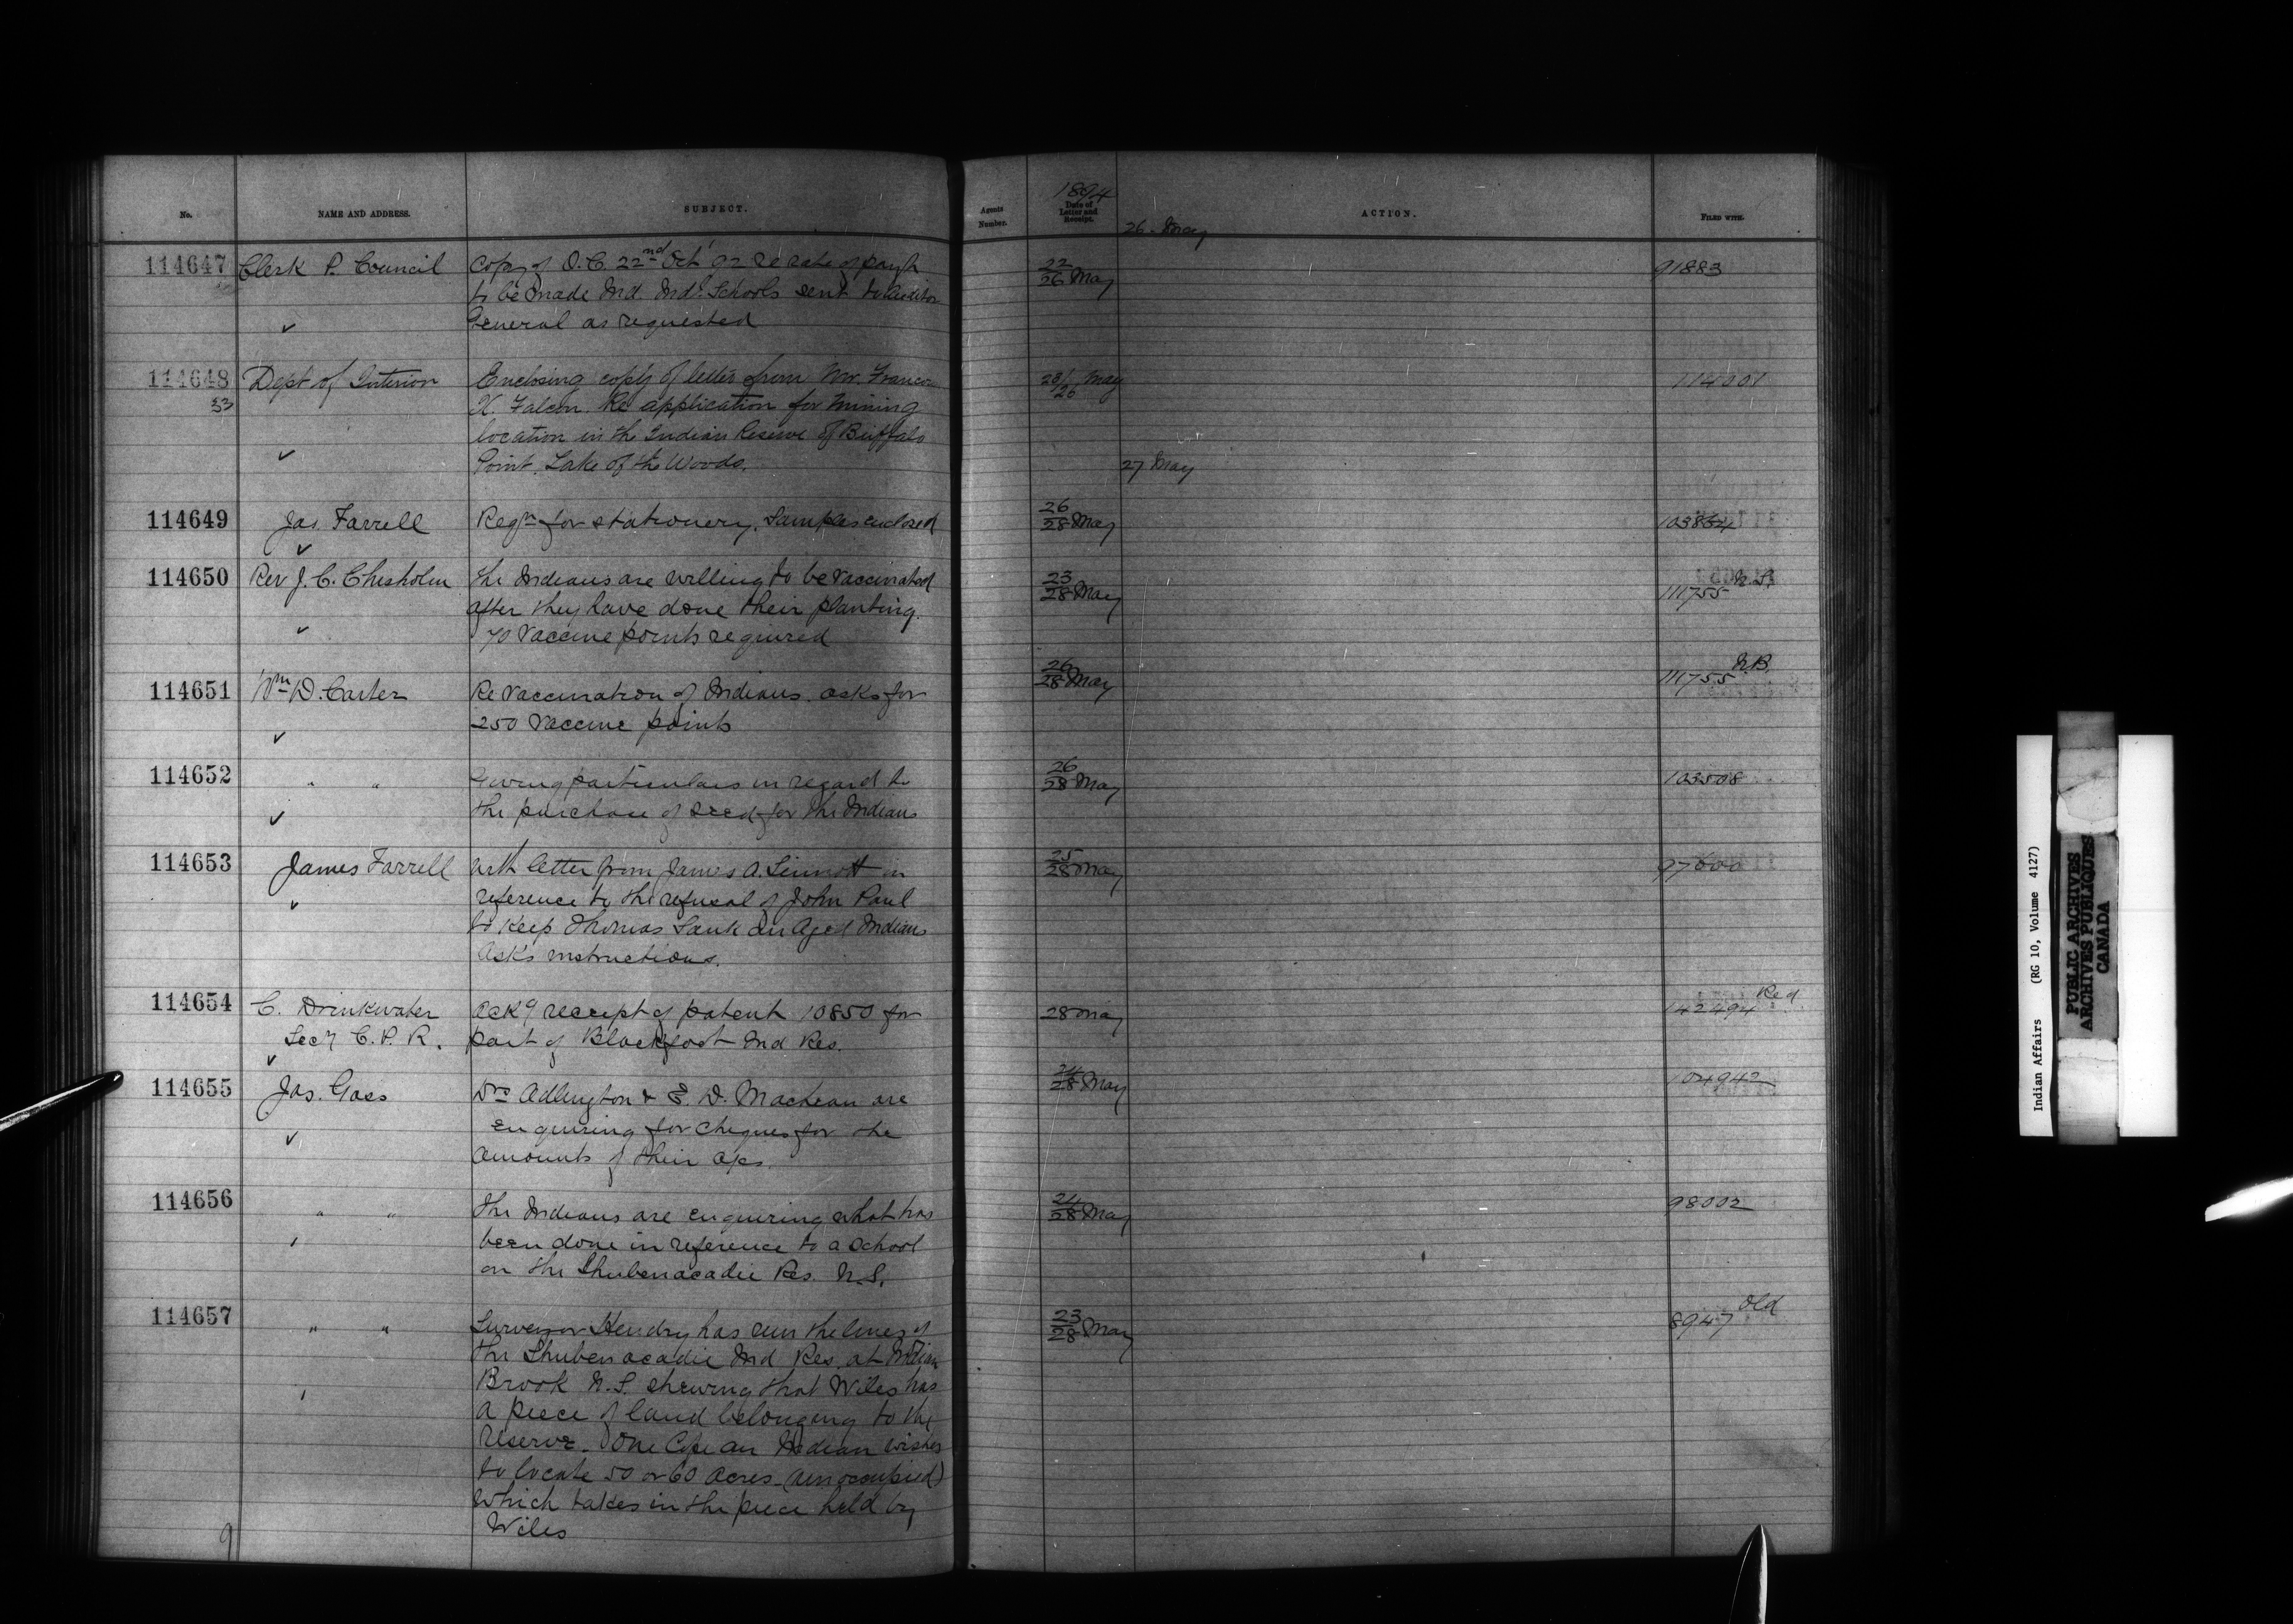 No. NAME AND ADDRESS. SUBJECT. Agents Number. 1894 Date of Letter and Receipt. ACTION. FILED WITH.
26. May
114647 Clerk P. Council Copy of O.C. 22nd Oct '92 re rate of paym't 22/26 May 91883
to be made Ind. Ind. Schools sent to Auditor
✓ General as requested
114648 Dept of Interior Enclosing copy of letter from Mr. Francois 28/26 May 114001
33 X. Falcon. Re application for mining
location in the Indian Reserve of Buffalo
✓ Point. Lake of the Woods.
27 May
114649 Jas. Farrell Reqn for stationery. Samples enclosed 26/28 May 103864
✓
114650 Rev J. C. Chisholm The Indians are willing to be vaccinated 23/28 May 111755 N.S.
after they have done their planting.
✓ 70 vaccine points required
114651 Wm D. Carter Re vaccination of Indians. asks for 26/28 May 111755 N.B.
250 vaccine points
✓
114652 " " Giving particulars in regard to 26/28 May 103508
✓ the purchase of seed for the Indians
114653 James Farrell With letter from James A. Sinnott in 25/28 May 97600
✓ reference to the refusal of John Paul
to keep Thomas Sank an Aged Indian
Asks instructions.
114654 C. Drinkwater Ackg receipt of patent 10850 for 28 May 142494 Red
Secy C. P. R. part of Blackfoot Ind Res.
✓
114655 Jas. Gass Drs Adlington & E. D. Machean are 24/28 May 104942
✓ enquiring for cheques for the
amounts of their a/cs.
114656 " " The Indians are enquiring what has 24/28 May 98002
been done in reference to a school
on the Shubenacadie Res. N.S.
114657 " " Surveyor Hendry has run the lines of 23/28 May 8947 Old
the Shubenacadie Ind Res. at Indian
Brook N.S. shewing that Wiles has
a piece of land belonging to the
reserve. One Cope an Indian wishes
to locate 50 or 60 acres (unoccupied)
which takes in the piece held by
Wiles
9
Indian Affairs (RG 10, Volume 4127)
PUBLIC ARCHIVES
ARCHIVES PUBLIQUES
CANADA